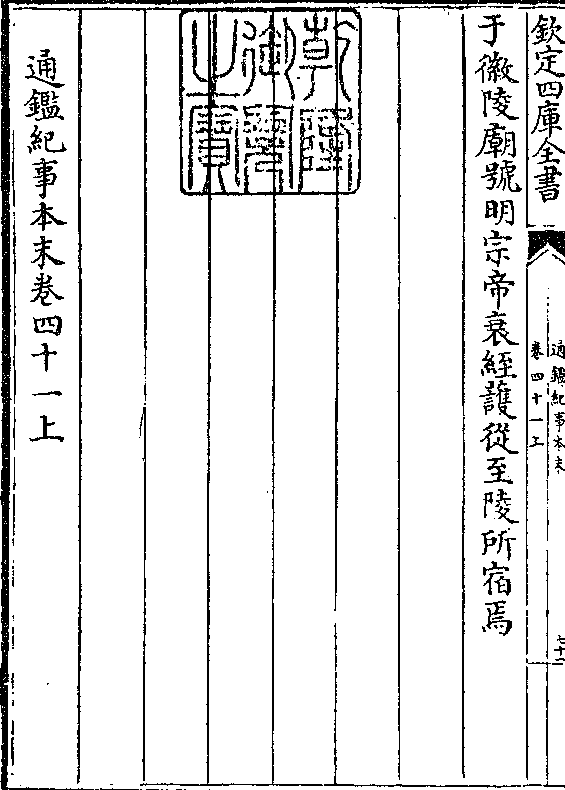 欽定四庫全書
通鑑紀事本末
卷四十一上
七十二
于徽陵廟號明宗帝衰絰護從至陵所宿焉
乾隆御覽之寶
通鑑紀事本末卷四十一上